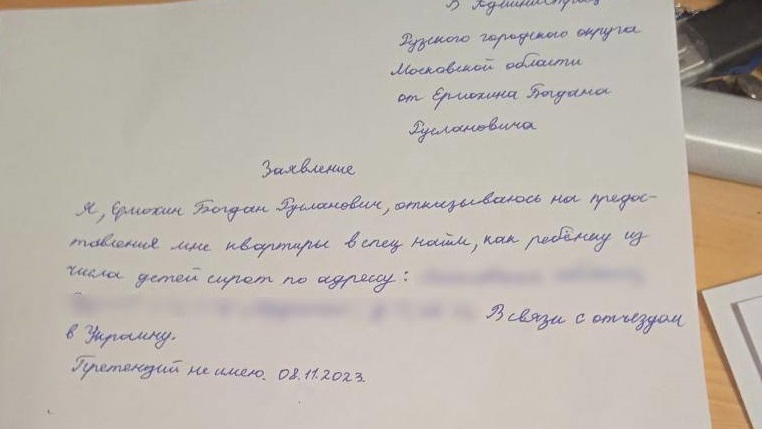 В Администрац
Рузского городского округа
Московской области
от Ермохина Богдана
Руслановича
Заявление
Я, Ермохин Богдан Русланович, отказываюсь на предос-
тавления мне квартиры в спец найм, как ребёнку из
числа детей сирот по адрессу:
В связи с отъездом
в Украину.
Претензий не имею. 08.11.2023